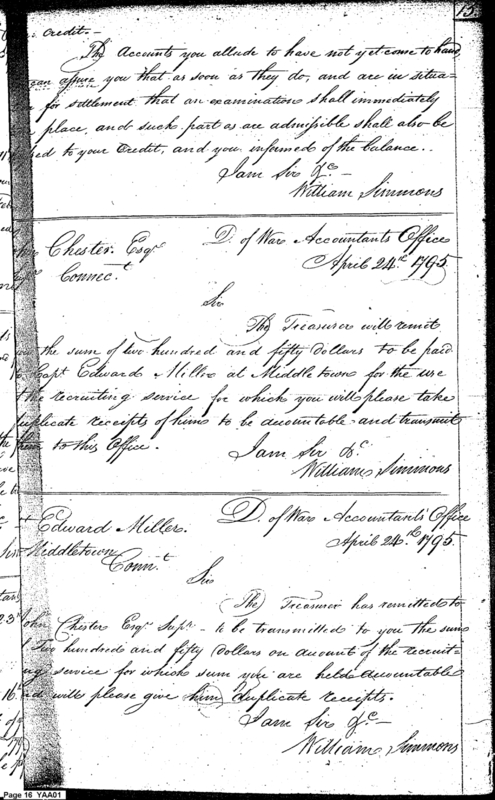 15
Credit.
The Accounts you allude to have not yet come to hand
can assure you that as soon as they do, and are in situa-
for settlement that an examination shall immediately
place, and such part as are admissible shall also be
to your Credit, and you informed of the balance..
I am Sir &c
William Simmons
Chester Esqr
Connect
D. of War Accountants Office
April 24th 1795
Sir
The Treasurer will remit
you the sum of two hundred and fifty dollars to be paid
to Capt Edward Miller at Middletown for the use
the recruiting service for which you will please take
duplicate receipts of him to be accountable and transmit
them to this Office.
I am Sir &c
William Simmons
Edward Miller.
Middletown
Connt
D. of War Accountants Office
April 24th 1795
Sir
The Treasurer has remitted to
John Chester Esqr Supr - to be transmitted to you the sum
Two hundred and fifty Dollars on account of the recruit-
ng service for which sum you are held accountable
nd will please give him duplicate receipts.
I am Sir &c
William Simmons
Page 16 YAA01